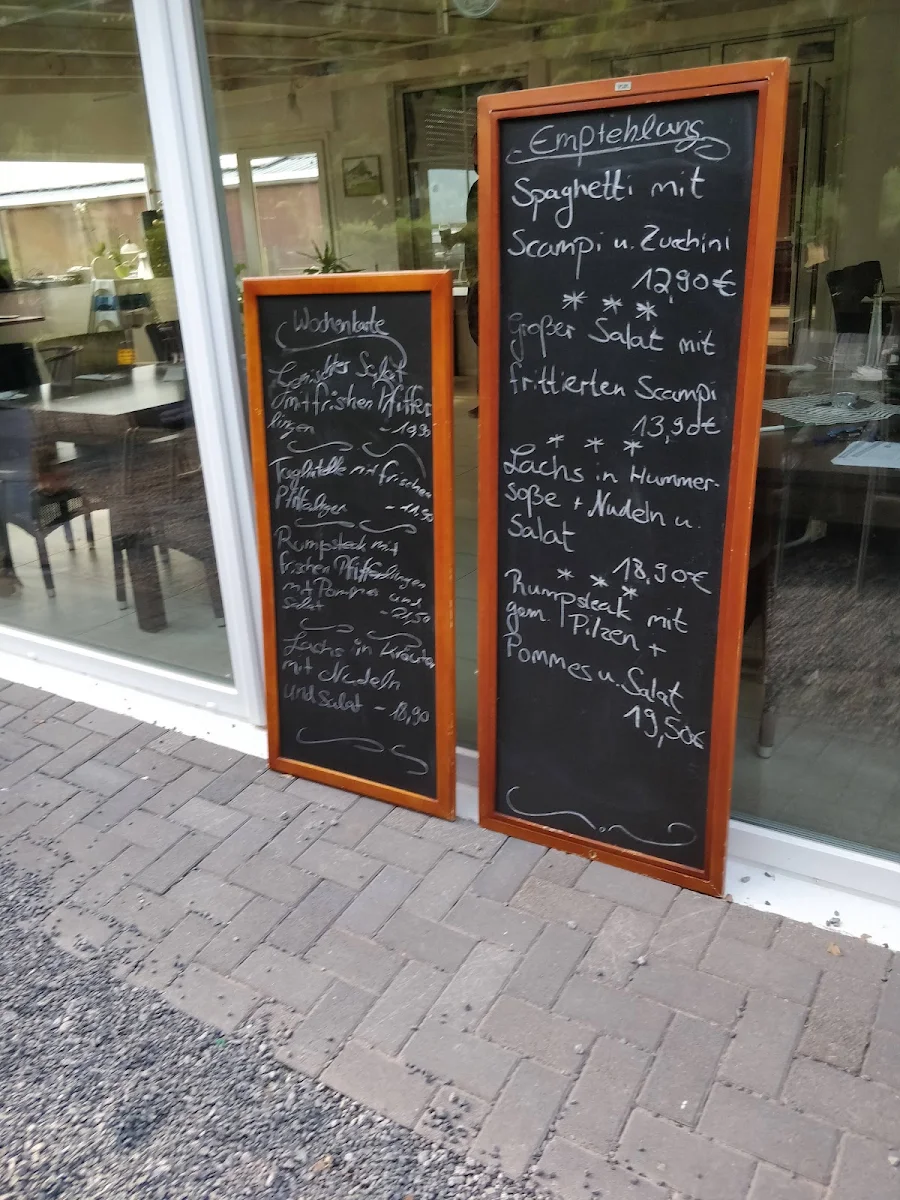 Wochenkarte
Gemischter Salat
mit frishen Pfiffer
lingen
Tagliatelle mit frischen
Pfifferlingen - 11,50
Rumpsteak mit
frischen Pfifferlingen
mit Pommes und
Salat - 21,50
Lachs in Kräuter
mit Nudeln
und Salat - 18,90
Empfehlung
Spaghetti mit
Scampi u. Zucchini
12,90€
* * *
Großer Salat mit
frittierten Scampi
13,90€
* * *
Lachs in Hummer-
soße + Nudeln u.
Salat
18,90€
* * *
Rumpsteak mit
gem. Pilzen +
Pommes u. Salat
19,50€